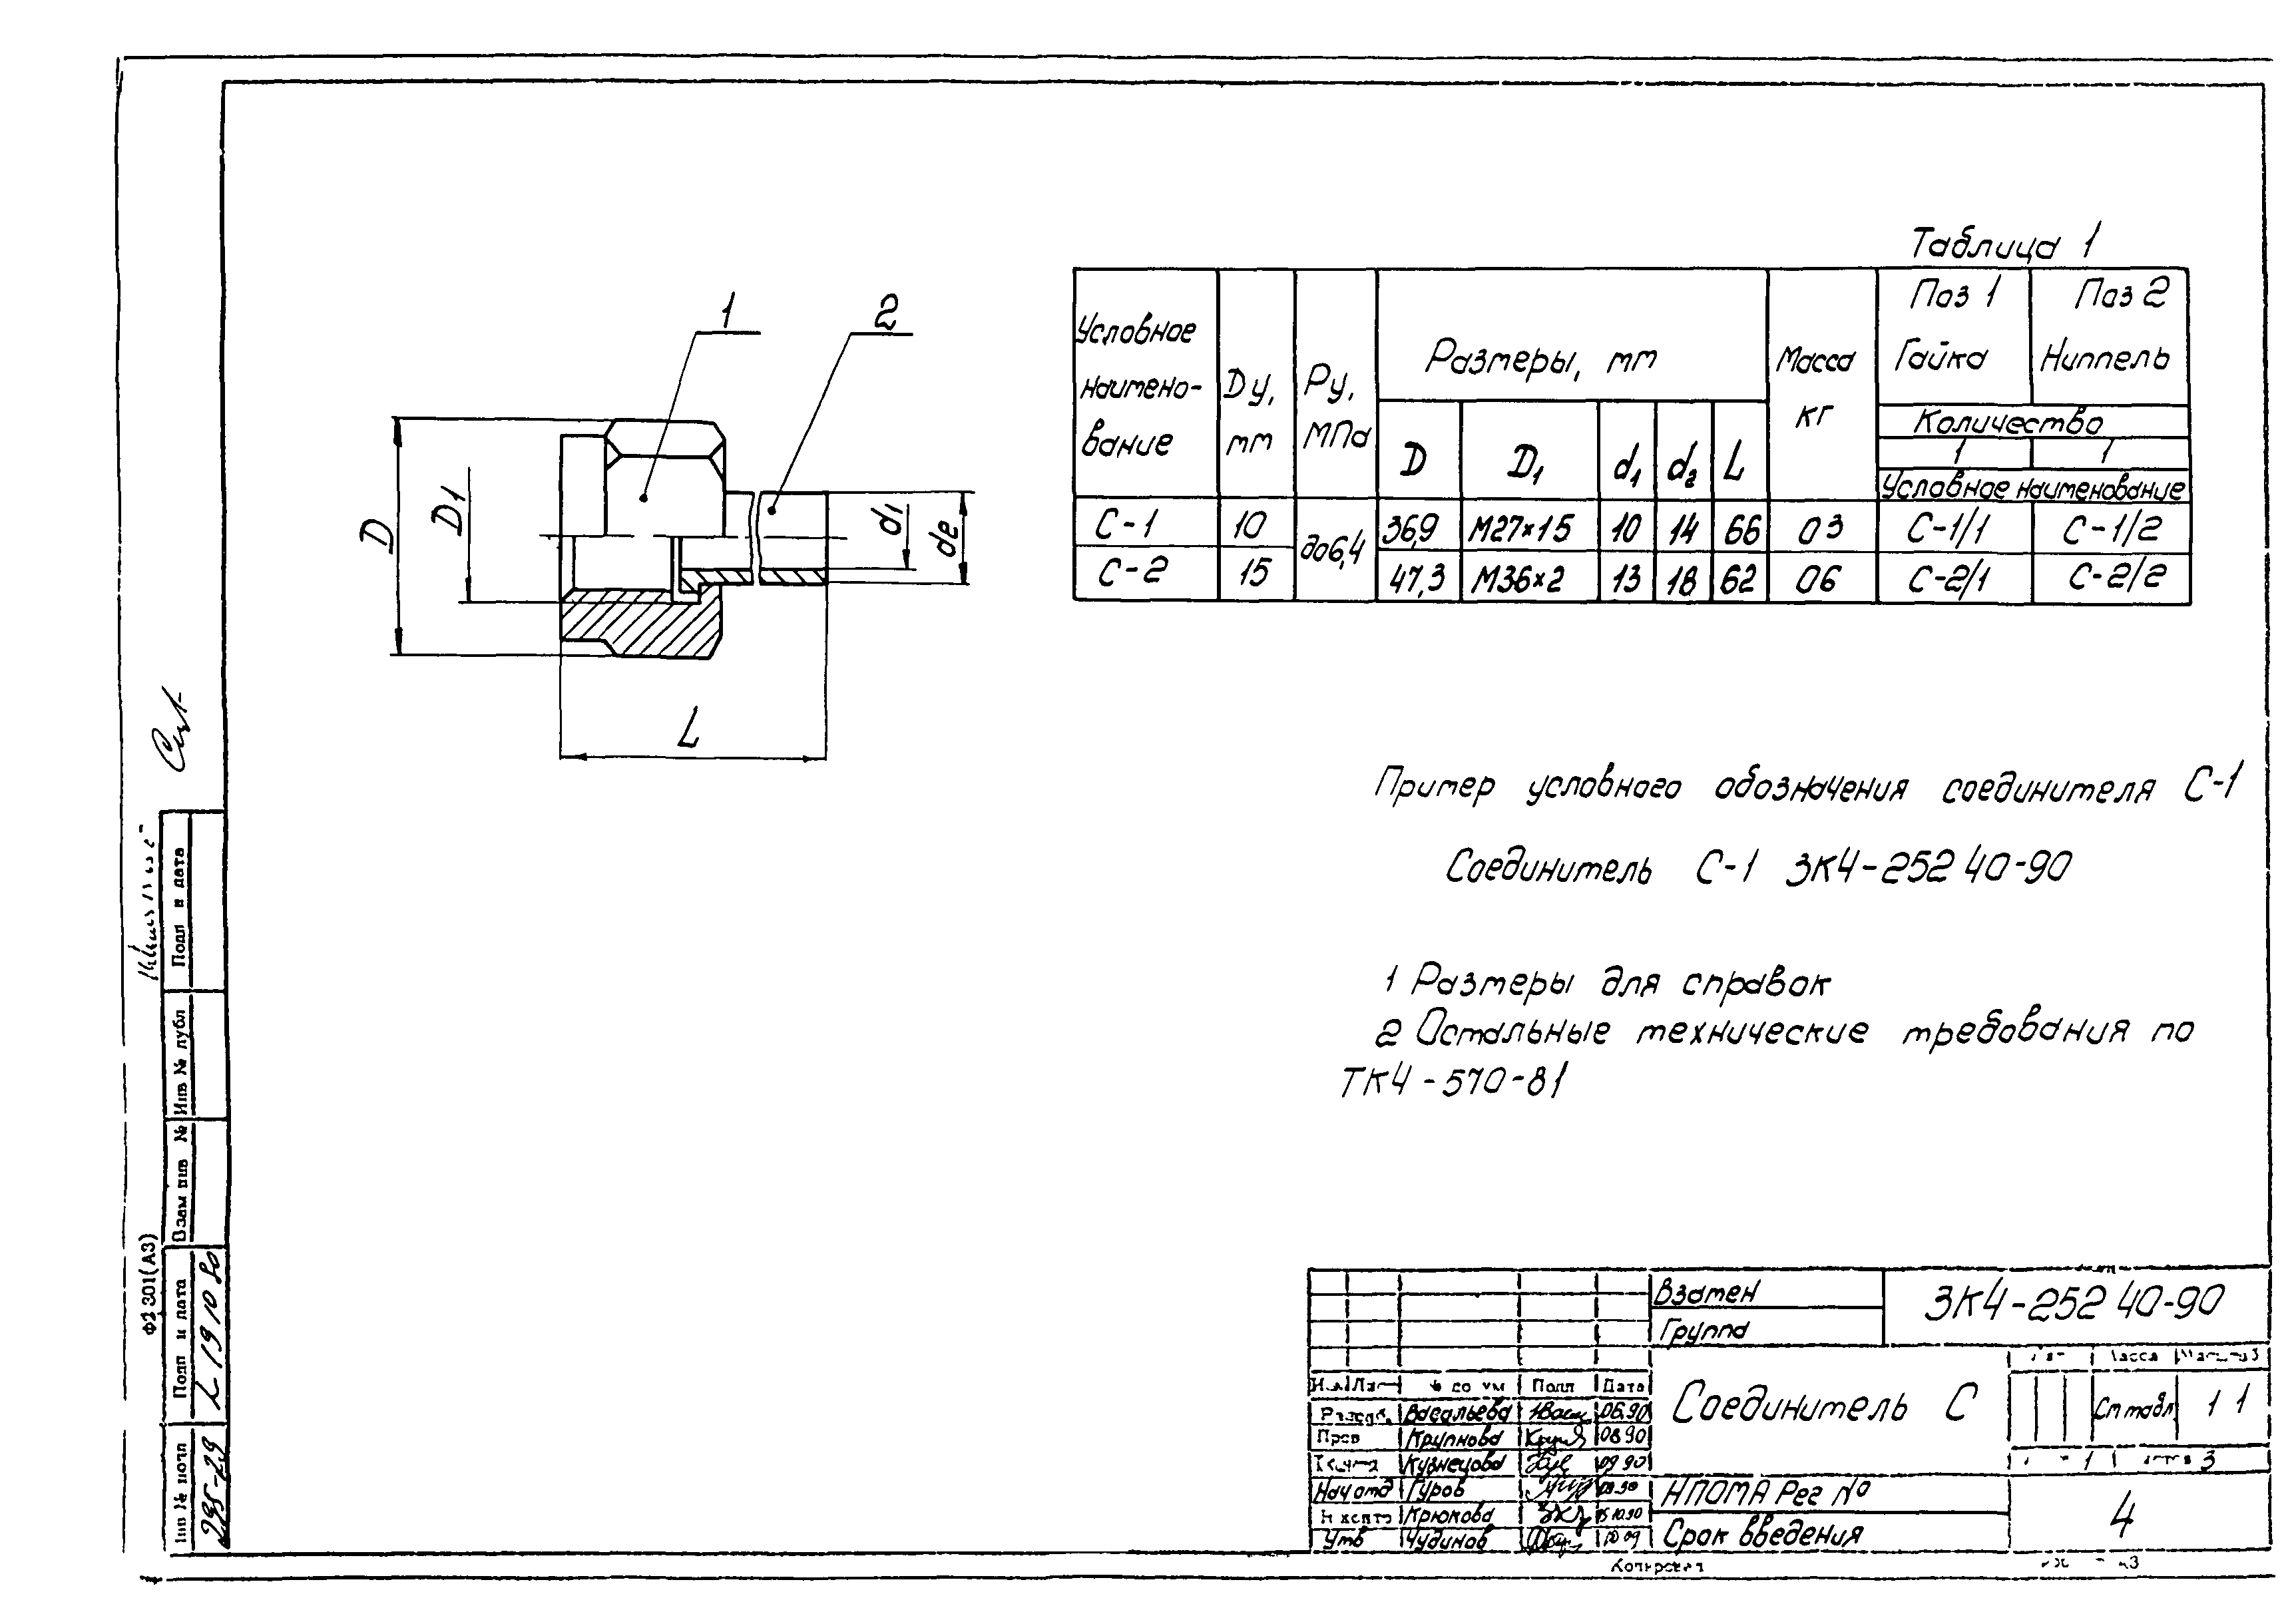 Таблица 1
Условное наимено-вание
Dу, мм
Ру, МПа
Размеры, мм
Масса кг
Поз 1 Гайка
Поз 2 Ниппель
Количество
1 1
D D1 d1 d2 L
Условное наименование
С-1 10 до6,4 36,9 М27×15 10 14 66 03 С-1/1 С-1/2
С-2 15 47,3 М36×2 13 18 62 06 С-2/1 С-2/2
1 2
D D1 d1 de
L
Пример условного обозначения соединителя С-1
Соединитель С-1 ЗК4-252 40-90
1 Размеры для справок
2 Остальные технические требования по
ТК4-570-81
Подп и дата
Инв № дубл
Взам инв №
Подп и дата 19 10 90
Инв № подл 295-29
Ф2 301(А3)
Взамен
Группа
ЗК4-252 40-90
Подп Дата
Васильева 06.90
Пров Крупнова 08 90
Кузнецова 09 90
Нач отд Гуров
Н контр Крюкова
Утв Чудинов
Соединитель С
Масса
См табл. 1 1
1 3
НПОМА Рег №
Срок введения
4
Копировал